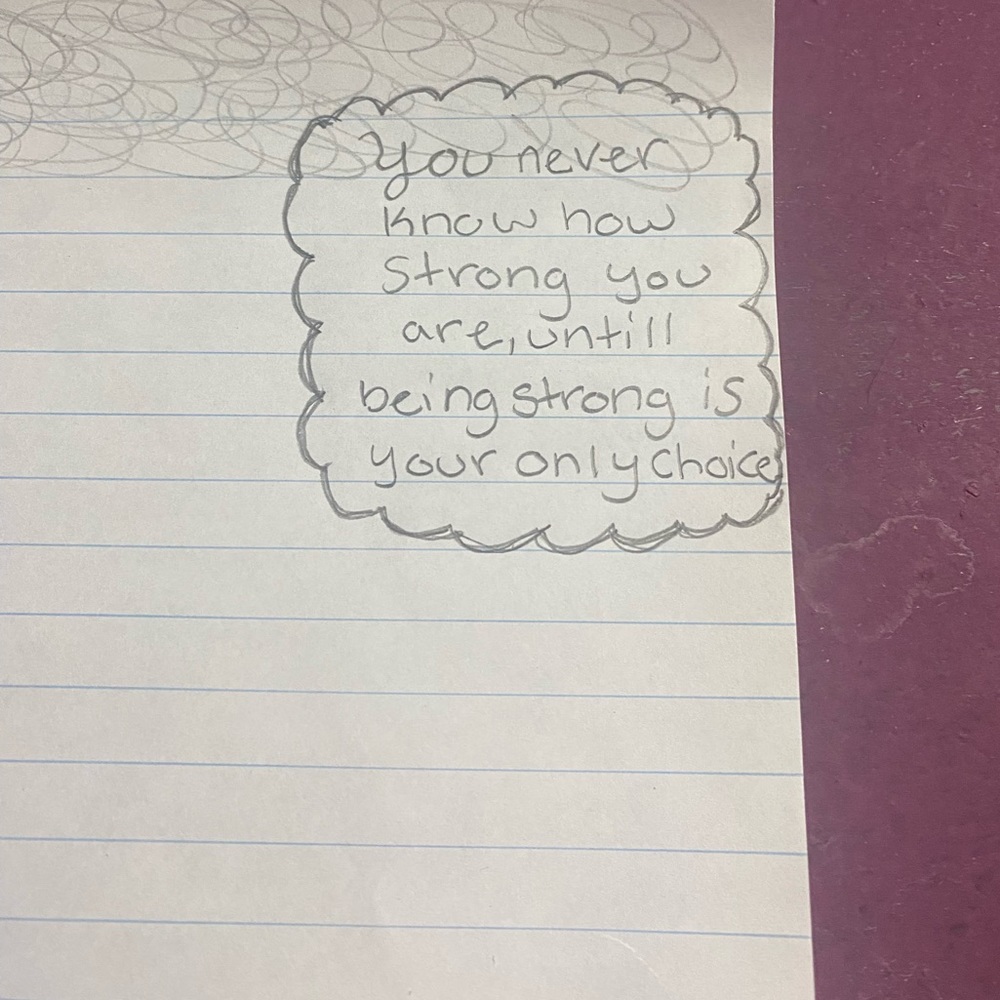 You never
Know how
Strong you
are, untill
being strong is
your only choice